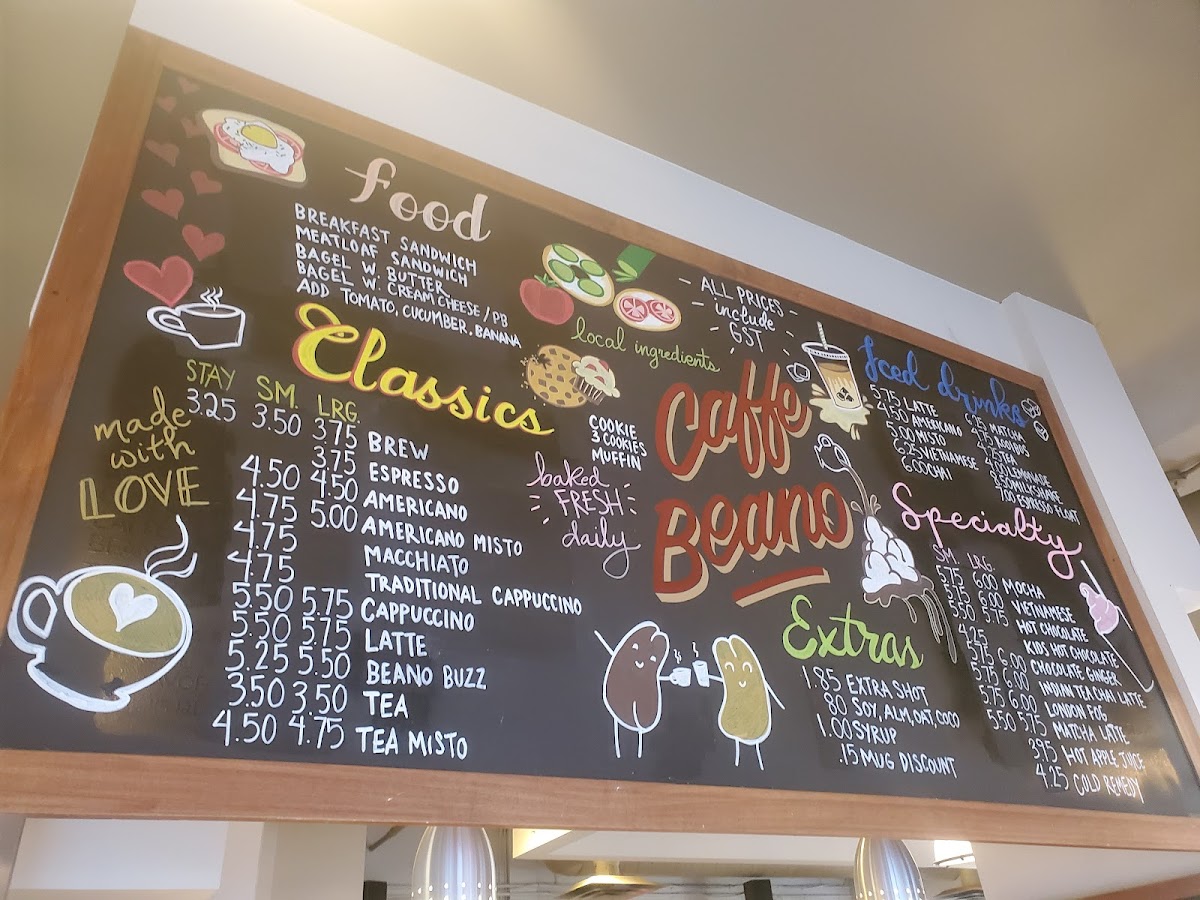 Food
BREAKFAST SANDWICH
MEATLOAF SANDWICH
BAGEL W. BUTTER
BAGEL W. CREAM CHEESE / PB
ADD TOMATO, CUCUMBER, BANANA
local ingredients
- ALL PRICES -
- include -
- GST -
made
with
LOVE
Classics
STAY SM. LRG.
3.25 3.50 3.75 BREW
3.75 ESPRESSO
4.50 4.50 AMERICANO
4.75 5.00 AMERICANO MISTO
4.75 MACCHIATO
4.75 TRADITIONAL CAPPUCCINO
5.50 5.75 CAPPUCCINO
5.50 5.75 LATTE
5.25 5.50 BEANO BUZZ
3.50 3.50 TEA
4.50 4.75 TEA MISTO
COOKIE
3 COOKIES
MUFFIN
baked
FRESH
daily
Caffe
Beano
Iced drinks
5.75 LATTE
4.50 AMERICANO
5.00 MISTO
6.25 VIETNAMESE
6.00 CHAI
MATCHA
TEA
LEMONADE
MILKSHAKE
7.00 ESPRESSO FLOAT
Specialty
SM. LRG.
5.75 6.00 MOCHA
5.75 6.00 VIETNAMESE
5.50 5.75 HOT CHOCOLATE
4.25 KIDS HOT CHOCOLATE
5.75 6.00 CHOCOLATE GINGER
5.75 6.00 INDIAN TEA CHAI LATTE
5.75 6.00 LONDON FOG
5.50 5.75 MATCHA LATTE
3.95 HOT APPLE JUICE
4.25 COLD REMEDY
Extras
1.85 EXTRA SHOT
.80 SOY, ALM, OAT, COCO
1.00 SYRUP
.15 MUG DISCOUNT